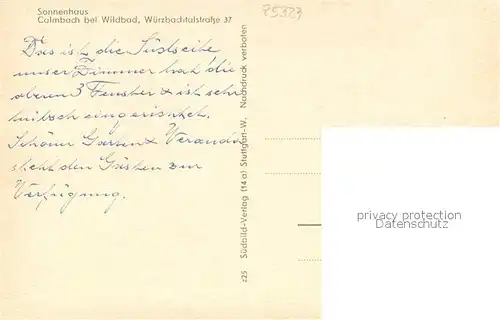 Sonnenhaus
Calmbach bei Wildbad, Würzbachtalstraße 37
75323
Das ist die Südseite
unser Zimmer hat die
oberen 3 Fenster & ist sehr
hübsch eingerichtet.
Schöner Garten & Veranda
steht den Gästen zur
Verfügung.
225 Südbild-Verlag (14a) Stuttgart-W. Nachdruck verboten
privacy protection
Datenschutz